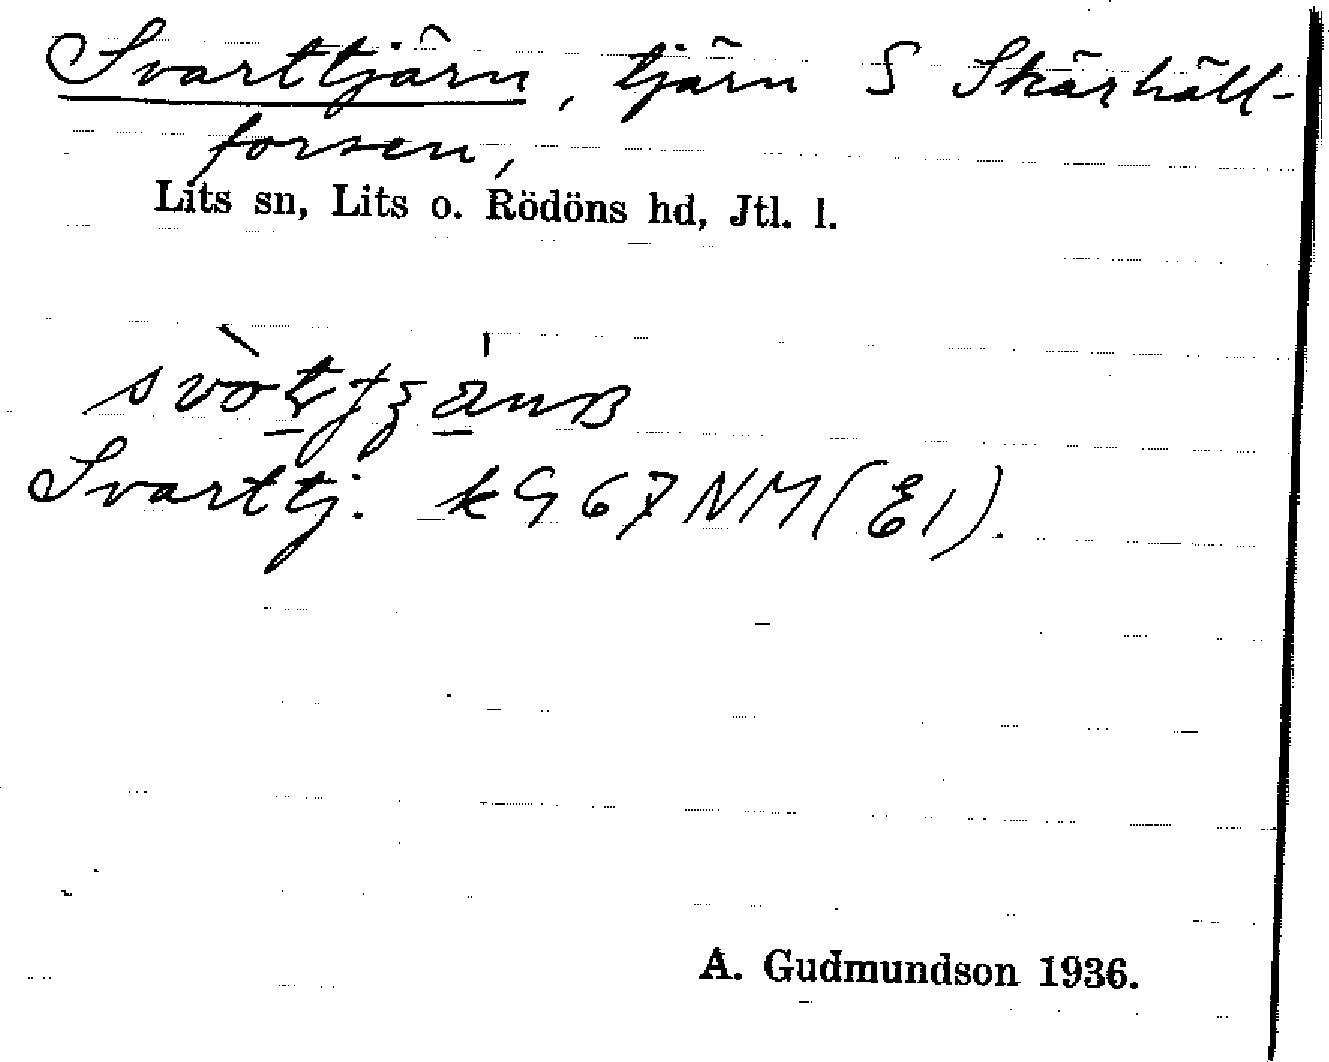 Svarttjärn, tjärn S Skärhäll-
forsen,
Lits sn, Lits o. Rödöns hd, Jtl. l.
Svarttj. kG 67 NM (E1).
A. Gudmundson 1936.